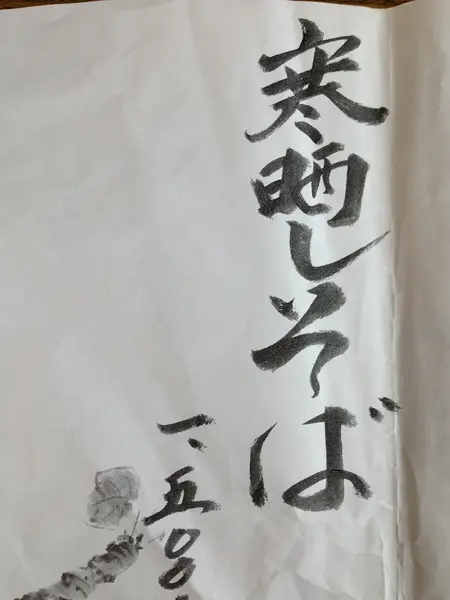 寒晒しそば
一、五〇〇